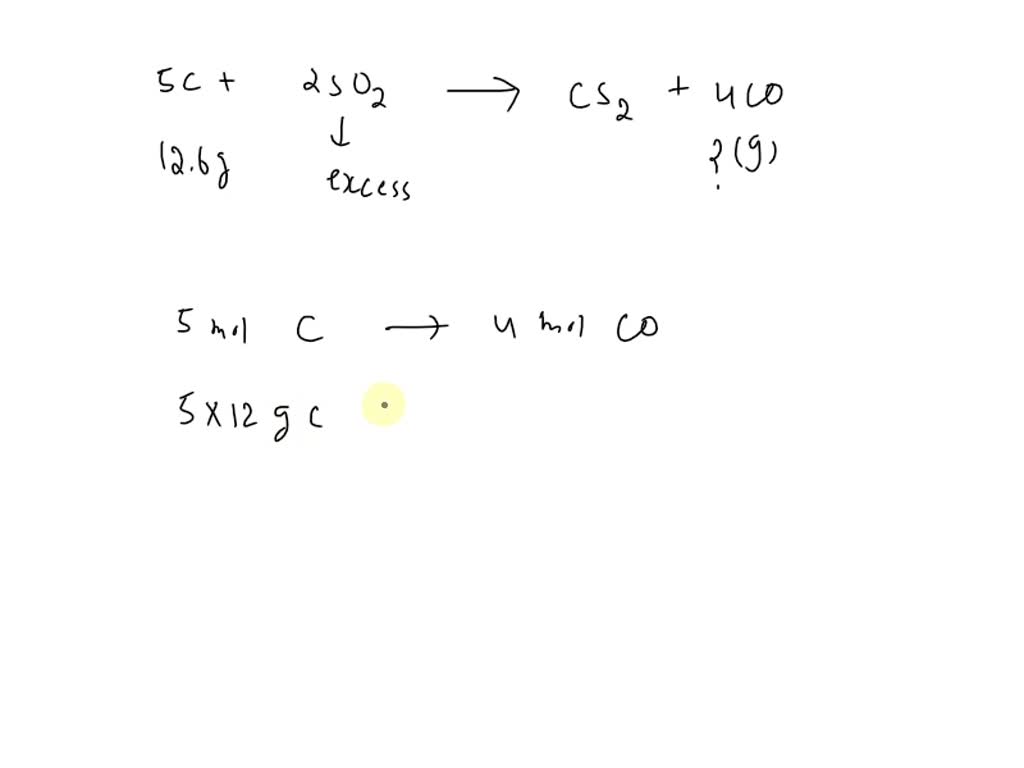 5C + 2SO2 → CS2 + 4CO
12.6g ↓ excess ?(g)
5 mol C → 4 mol CO
5×12 g C